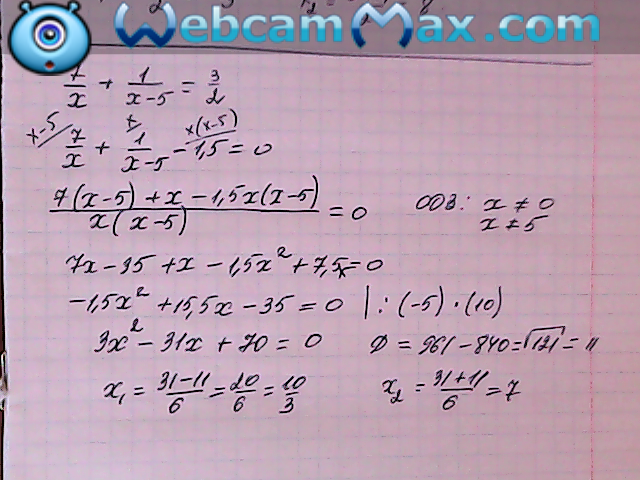 WebcamMax.com
7/x + 1/(x-5) = 3/2
x-5/ x/ x(x-5)/
7/x + 1/(x-5) - 1,5 = 0
(7(x-5) + x - 1,5x(x-5))/(x(x-5)) = 0 ОДЗ: x ≠ 0
x ≠ 5
7x - 35 + x - 1,5x² + 7,5x = 0
-1,5x² + 15,5x - 35 = 0 | : (-5) · (10)
3x² - 31x + 70 = 0 D = 961 - 840 = √121 = 11
x₁ = (31-11)/6 = 20/6 = 10/3 x₂ = (31+11)/6 = 7